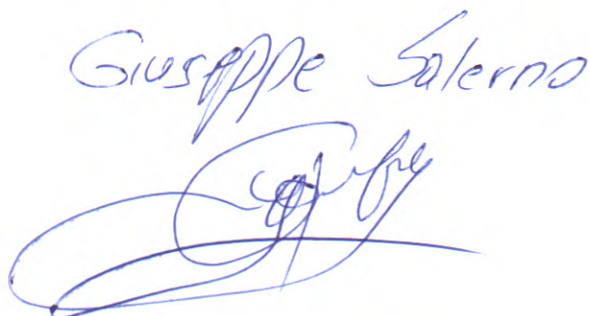 Giuseppe Salerno